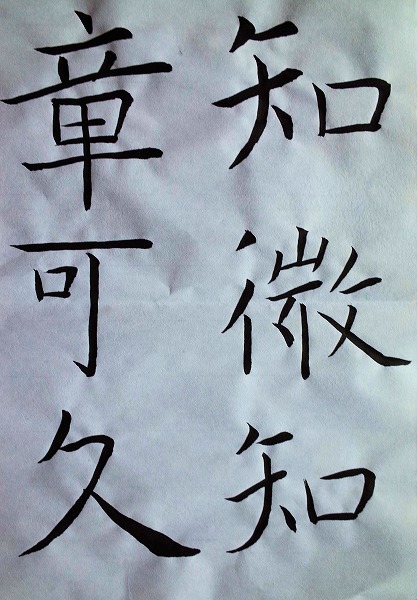 知微知
章可久